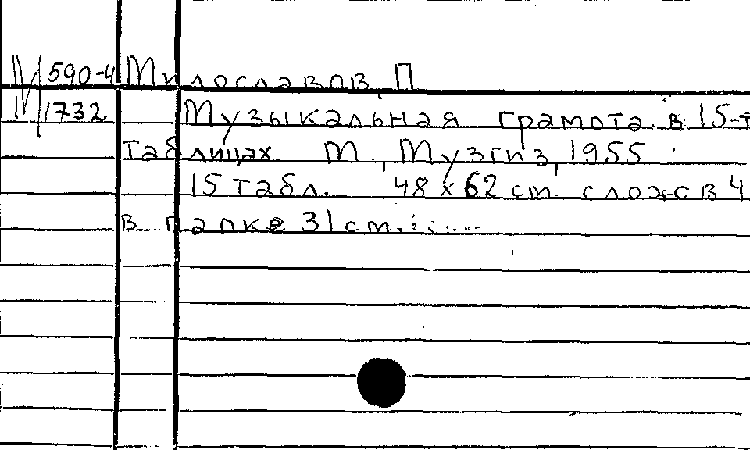 М 590-4 Милославов, П
М 1732 Музыкальная грамота в 15-т
таблицах. М, Музгиз, 1955
15 табл. 48 х 62 см. слож в 4
в папке 31 см.